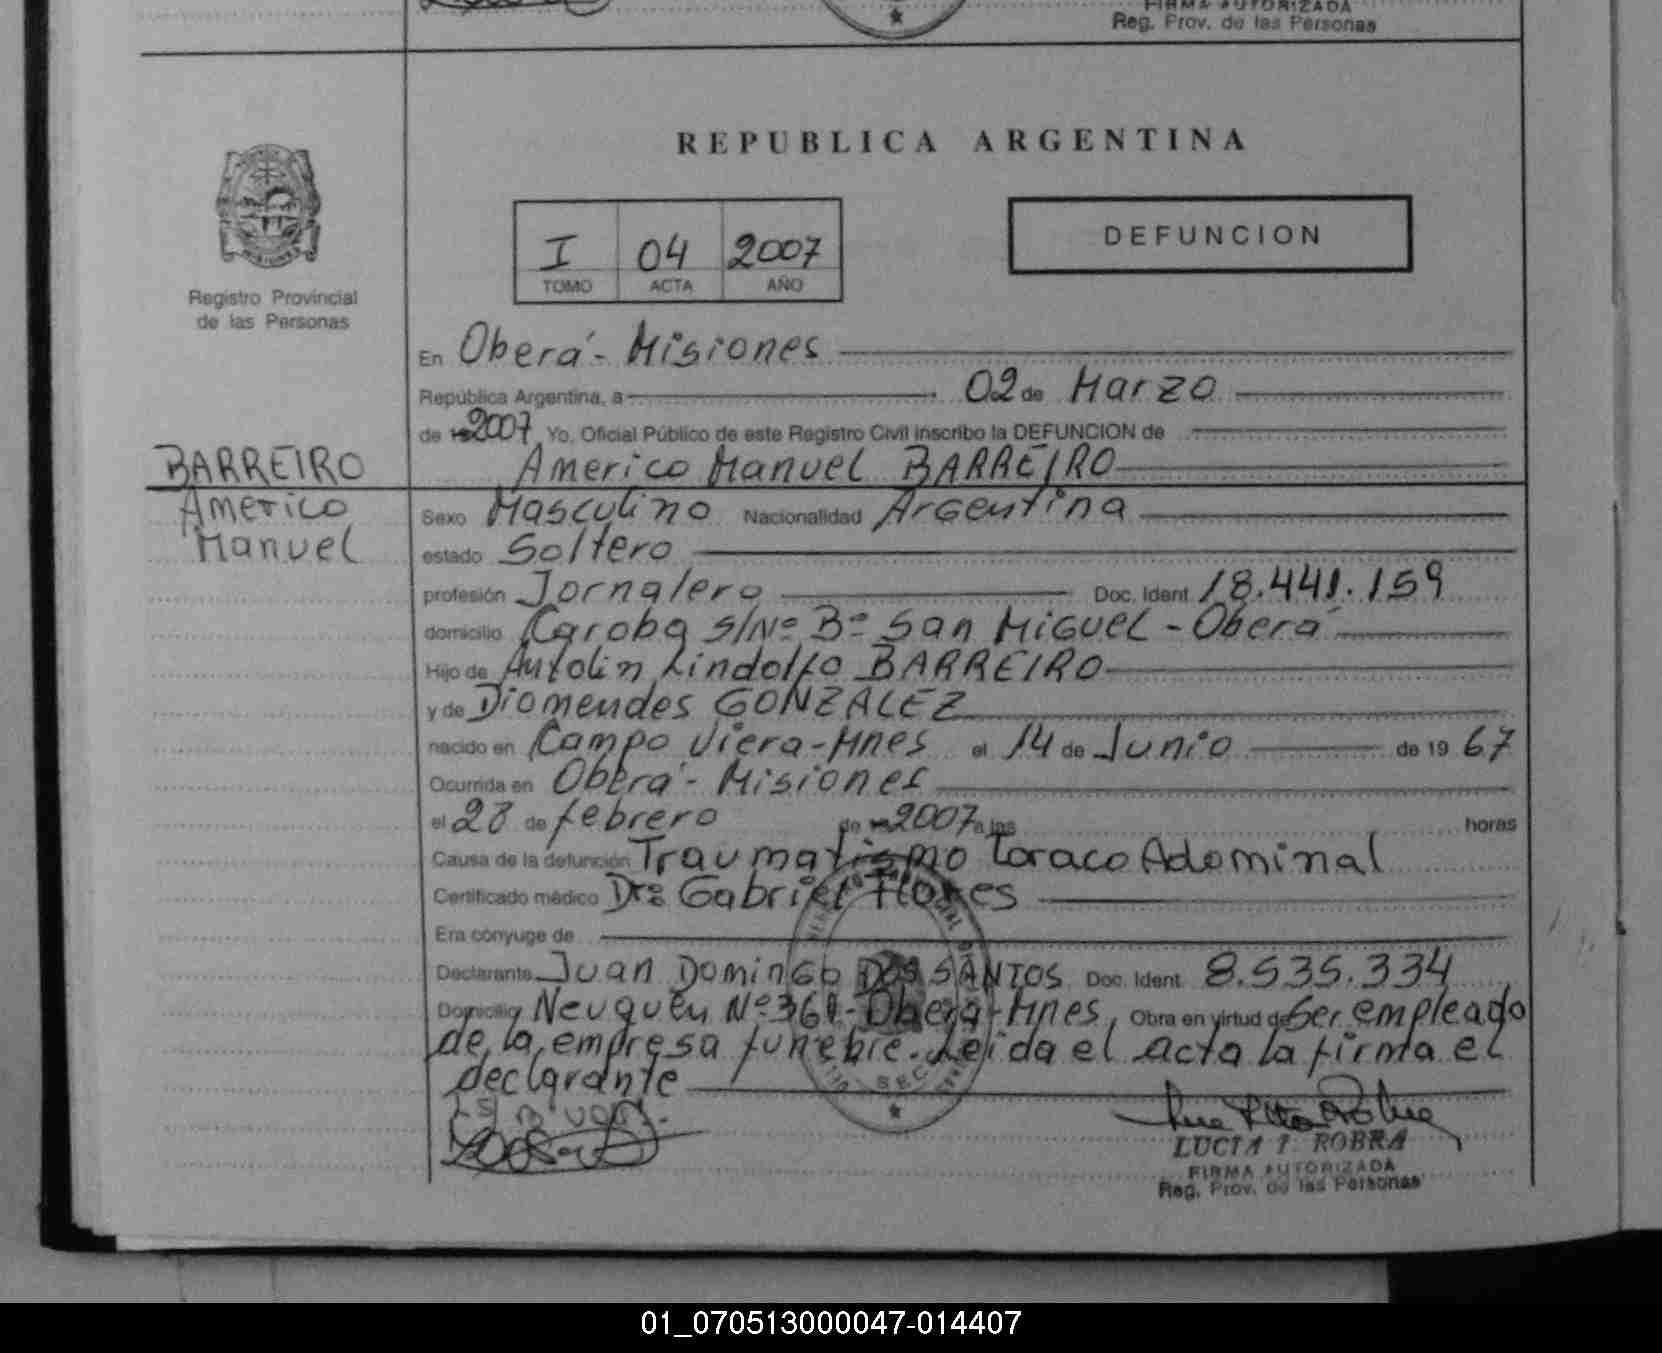 FIRMA AUTORIZADA
Reg. Prov. de las Personas
REPUBLICA ARGENTINA
I 04 2007
TOMO ACTA AÑO
DEFUNCION
Registro Provincial
de las Personas
En Oberá - Misiones
República Argentina, a 02 de Marzo
de 2007 Yo, Oficial Público de este Registro Civil inscribo la DEFUNCION de
BARREIRO Americo Manuel BARREIRO
Americo
Manuel
Sexo Masculino Nacionalidad Argentina
estado Soltero
profesión Jornalero Doc. Ident. 18.441.159
domicilio Caroba s/Nº Bº San Miguel - Oberá
Hijo de Autolin Lindolfo BARREIRO
y de Diomendes GONZALEZ
nacido en Campo Viera - Mnes el 14 de Junio de 19 67
Ocurrida en Oberá - Misiones
el 28 de febrero de 2007 a las horas
Causa de la defunción Traumatismo Toraco Adominal
Certificado médico Dr: Gabriel Flores
Era cónyuge de
Declarante Juan Domingo DOS SANTOS Doc. Ident. 8.535.334
Domicilio Neuquén Nº 361 - Oberá - Mnes, Obra en virtud de Ser empleado
de la empresa funebre. Leida el acta la firma el
declarante
LUCIA I. ROBRA
FIRMA AUTORIZADA
Reg. Prov. de las Personas
01_070513000047-014407